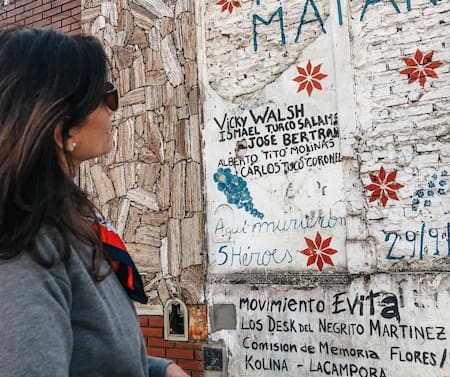 MATAN
VICKY WALSH
ISMAEL TURCO SALAME
JOSE BERTRAN
ALBERTO "TITO" MOLINAS
CARLOS TUCU CORONEL
Aquí murieron
5 Héroes.
29/9/
MOVIMIENTO EVITA
LOS DESK DEL NEGRITO MARTINEZ
COMISION DE MEMORIA FLORES/
KOLINA - LACAMPORA